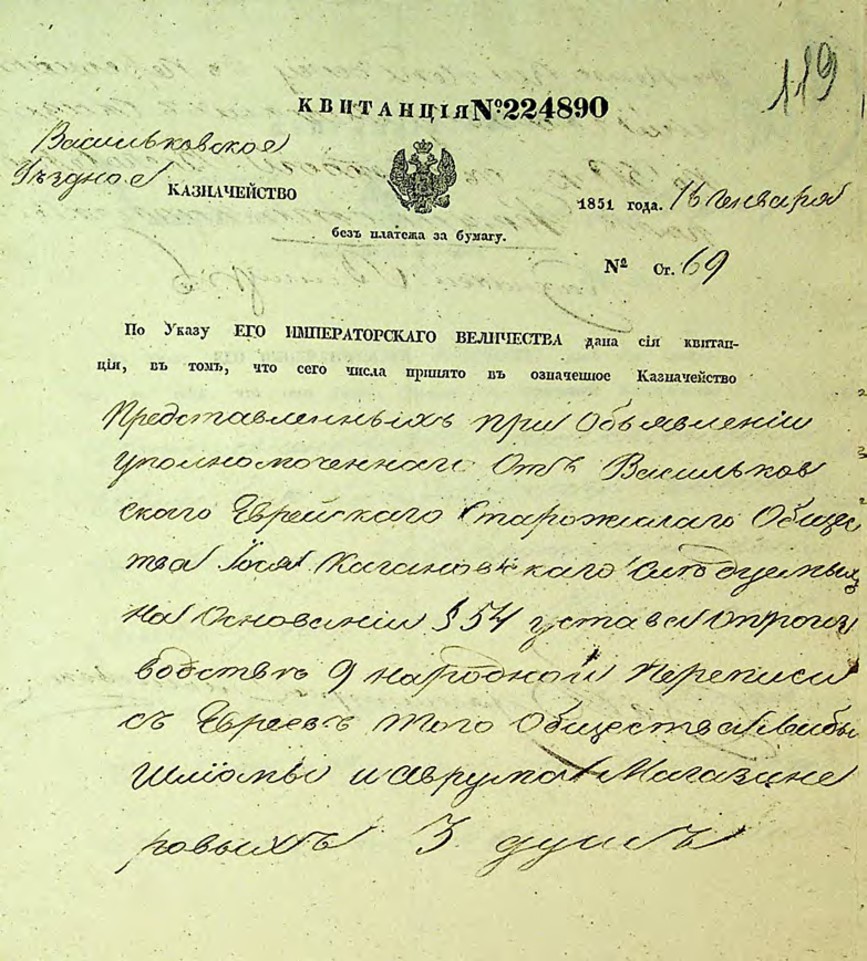 119
КВИТАНЦІЯ №224890
Васильковское
Уѣздное КАЗНАЧЕЙСТВО
1851 года. 16 января
безъ платежа за бумагу.
№ Ст. 69
По Указу ЕГО ИМПЕРАТОРСКАГО ВЕЛИЧЕСТВА дана сія квитан-
ція, въ томъ, что сего числа принято въ означенное Казначейство
Представленныхъ при Объявленіи
уполномоченнаго Отъ Васильков
скаго Еврейскаго Старожилаго Общес
тва Іося Кагановскаго слѣдуемыхъ
на Основаніи § 54 устава о произ
водствѣ 9 народной Переписи
съ Евреевъ того Общества Лейбы
Шліомы и Аврума Магазине
ровыхъ 3 душъ